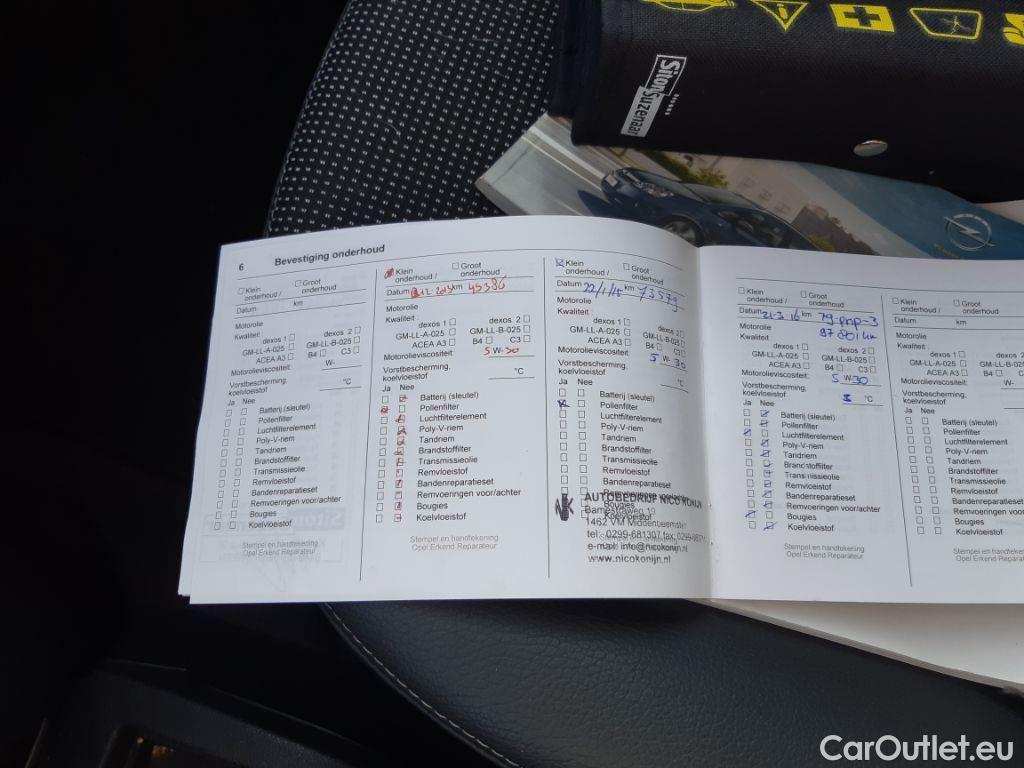 Siton Suzenaar
6 Bevestiging onderhoud
Klein onderhoud / Groot onderhoud
Datum km
Motorolie
Kwaliteit
dexos 1 dexos 2
GM-LL-A-025 GM-LL-B-025
ACEA A3 B4 C3
Motorolieviscositeit: W-
Vorstbescherming, koelvloeistof °C
Ja Nee
Batterij (sleutel)
Pollenfilter
Luchtfilterelement
Poly-V-riem
Tandriem
Brandstoffilter
Transmissieolie
Remvloeistof
Bandenreparatieset
Remvoeringen voor/achter
Bougies
Koelvloeistof
Stempel en handtekening
Opel Erkend Reparateur
Klein onderhoud / Groot onderhoud
Datum km 45386
Motorolie
Kwaliteit:
dexos 1 dexos 2
GM-LL-A-025 GM-LL-B-025
ACEA A3 B4 C3
Motorolieviscositeit: 5 W-30
Vorstbescherming, koelvloeistof °C
Ja Nee
Batterij (sleutel)
Pollenfilter
Luchtfilterelement
Poly-V-riem
Tandriem
Brandstoffilter
Transmissieolie
Remvloeistof
Bandenreparatieset
Remvoeringen voor/achter
Bougies
Koelvloeistof
Stempel en handtekening
Opel Erkend Reparateur
Klein onderhoud / Groot onderhoud
Datum 22/1/15 km 73579
Motorolie
Kwaliteit:
dexos 1 dexos 2
GM-LL-A-025 GM-LL-B-025
ACEA A3 B4 C3
Motorolieviscositeit: 5 W-30
Vorstbescherming, koelvloeistof °C
Ja Nee
Batterij (sleutel)
Pollenfilter
Luchtfilterelement
Poly-V-riem
Tandriem
Brandstoffilter
Transmissieolie
Remvloeistof
Bandenreparatieset
Remvoeringen voor/achter
Bougies
Koelvloeistof
AUTOBEDRIJF NICO KONIJN
1462 VM Middenbeemster
tel: 0299-681307 fax:
e-mail: info@nicokonijn.nl
www.nicokonijn.nl
Klein onderhoud / Groot onderhoud
Datum 21-3-16 km 79-pnp-3
Motorolie 97801 km
Kwaliteit:
dexos 1 dexos 2
GM-LL-A-025 GM-LL-B-025
ACEA A3 B4 C3
Motorolieviscositeit: 5 W-30
Vorstbescherming, koelvloeistof °C
Ja Nee
Batterij (sleutel)
Pollenfilter
Luchtfilterelement
Poly-V-riem
Tandriem
Brandstoffilter
Transmissieolie
Remvloeistof
Bandenreparatieset
Remvoeringen voor/achter
Bougies
Koelvloeistof
Stempel en handtekening
Opel Erkend Reparateur
Klein onderhoud / Groot onderhoud
Datum km
Motorolie
Kwaliteit :
dexos 1
GM-LL-A-025 GM-LL-B-025
ACEA A3 B4
Motorolieviscositeit: W-
Vorstbescherming, koelvloeistof
Ja Nee
Batterij (sleutel)
Pollenfilter
Luchtfilterelement
Poly-V-riem
Tandriem
Brandstoffilter
Transmissieolie
Remvloeistof
Bandenreparatieset
Remvoeringen voor/achter
Bougies
Koelvloeistof
Stempel en handtekening
Opel Erkend Reparateur
CarOutlet.eu